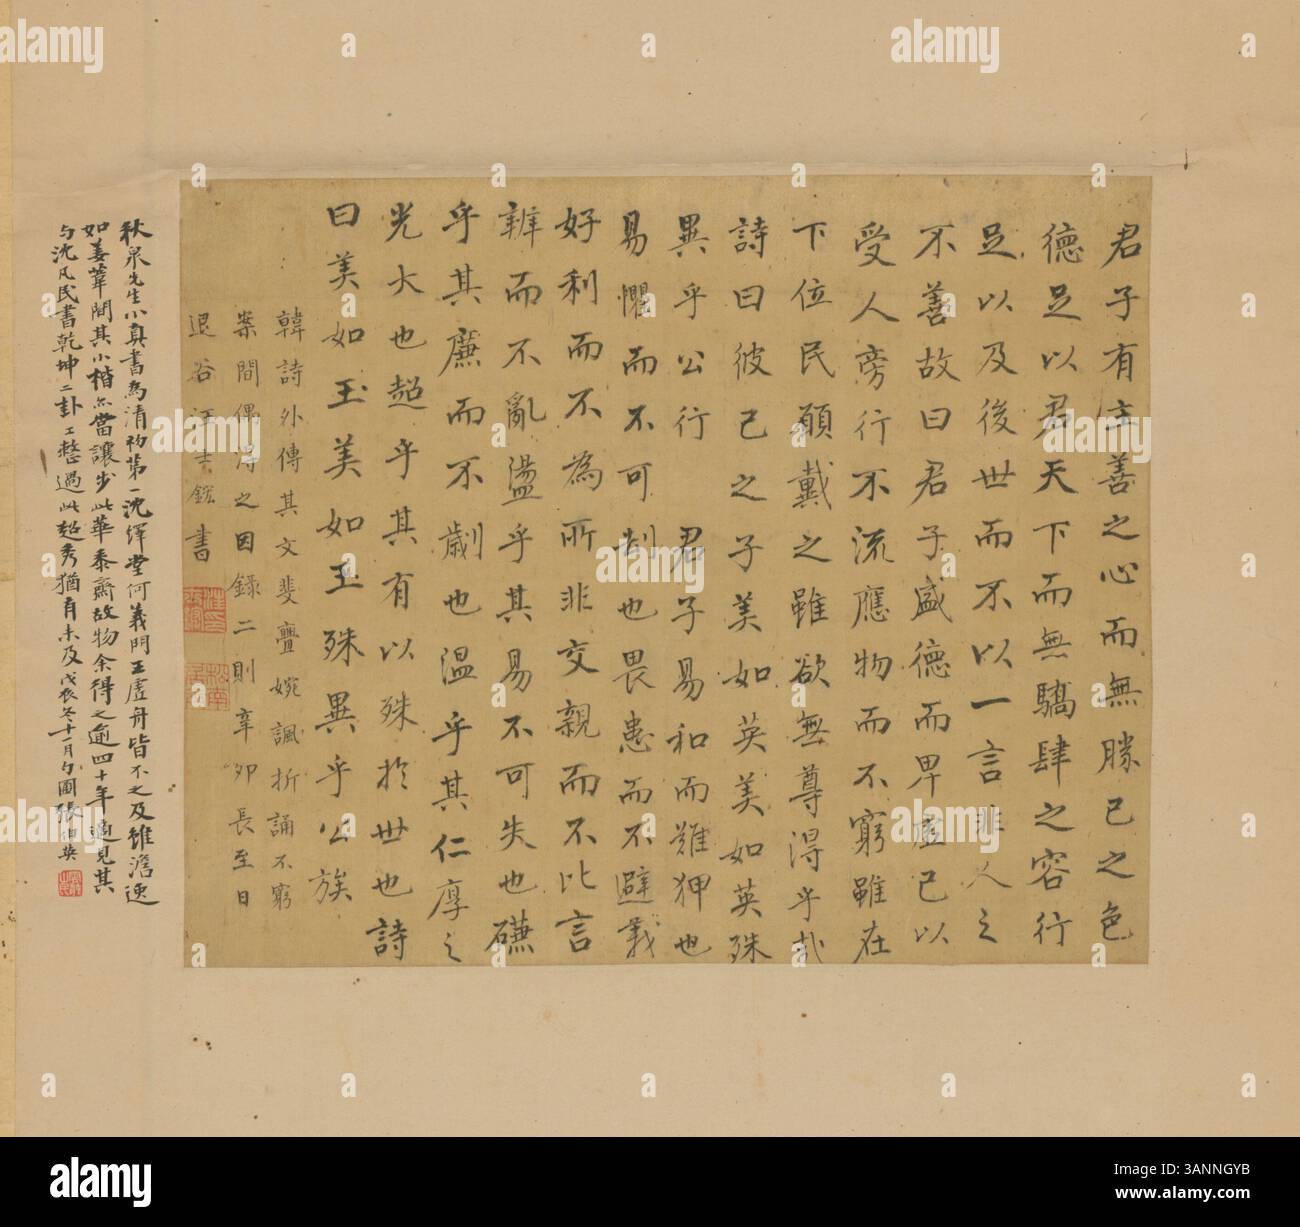 君子有主善之心而無勝己之色
德足以君天下而無驕肆之容行
足以及後世而不以一言非人之
不善故曰君子盛德而卑虛己以
受人旁行不流應物而不窮雖在
下位民願戴之雖欲無尊得乎哉
詩曰彼己之子美如英美如英殊
異乎公行 君子易和而難狎也
易懼而不可刦也畏患而不避義
好利而不為所非交親而不比言
辨而不亂盪乎其易不可失也礛
乎其廉而不劌也溫乎其仁厚之
光大也超乎其有以殊於世也詩
曰美如玉美如玉殊異乎公族
韓詩外傳其文斐亹婉諷折誦不窮
案間偶得之因錄二則辛夘長至日
退谷汪士鋐書
秋泉先生小真書為清初第一沈繹堂何義門王虛舟皆不之及雖澹逸
如姜葦間其小楷亦當讓步此華泰齋故物余得之逾四十年適見其
与沈凡民書乾坤二卦工整過此超秀猶有未及戊辰冬十一月勺圃張伯英
alamy
a
3ANNGYB
www.alamy.com